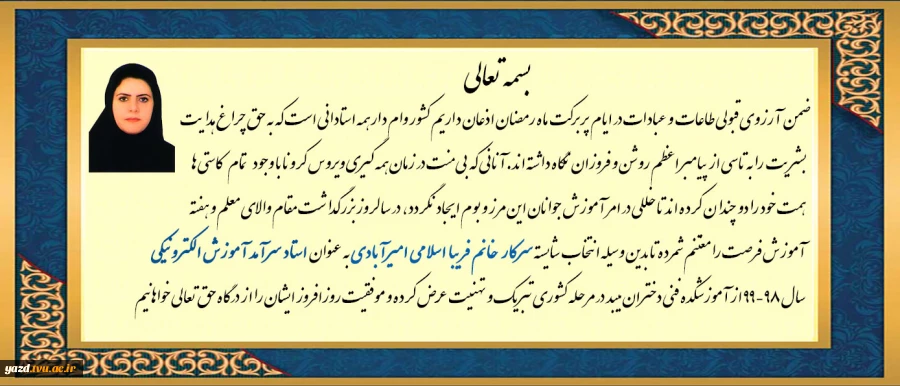 بسمه تعالی
ضمن آرزوی قبولی طاعات و عبادات در ایام پر برکت ماه رمضان اذعان داریم کشور وام دار همه استادانی است که به حق چراغ هدایت
بشریت را به تاسی از پیامبر اعظم روشن و فروزان نگاه داشته اند، آنانی که بی منت در زمان همه گیری ویروس کرونا با وجود تمام کاستی ها
همت خود را دو چندان کرده اند تا خللی در امر آموزش جوانان این مرز و بوم ایجاد نگردد، در سالروز بزرگداشت مقام والای معلم و هفته
آموزش فرصت را مغتنم شمرده تا بدین وسیله انتخاب شایسته سرکار خانم فریبا اسلامی امیرآبادی به عنوان استاد سرآمد آموزش الکترونیکی
سال ۹۸-۹۹ از آموزشکده فنی دختران میبد در مرحله کشوری تبریک و تهنیت عرض کرده و موفقیت روز افزون ایشان را از درگاه حق تعالی خواهانیم
yazd.tvu.ac.ir